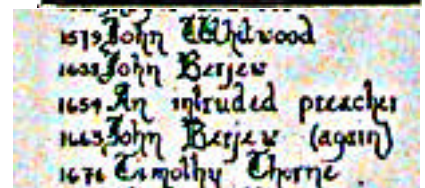 1579 John Whitwood
1631 John Berjew
1654 An intruded preacher
1663 John Berjew (again)
1676 Timothy Thorne